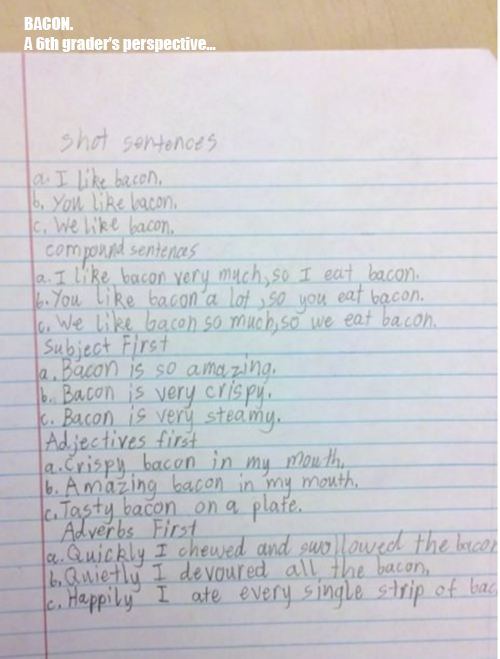 BACON.
A 6th grader's perspective...
shot sentences
a. I like bacon.
b. You like bacon.
c. We like bacon.
compound sentences
a. I like bacon very much, so I eat bacon.
b. You like bacon a lot, so you eat bacon.
c. We like bacon so much, so we eat bacon.
Subject First
a. Bacon is so amazing.
b. Bacon is very crispy.
c. Bacon is very steamy.
Adjectives first
a. Crispy bacon in my mouth.
b. Amazing bacon in my mouth.
c. Tasty bacon on a plate.
Adverbs First
a. Quickly I chewed and swollowed the bacon
b. Quietly I devoured all the bacon.
c. Happily I ate every single strip of bac